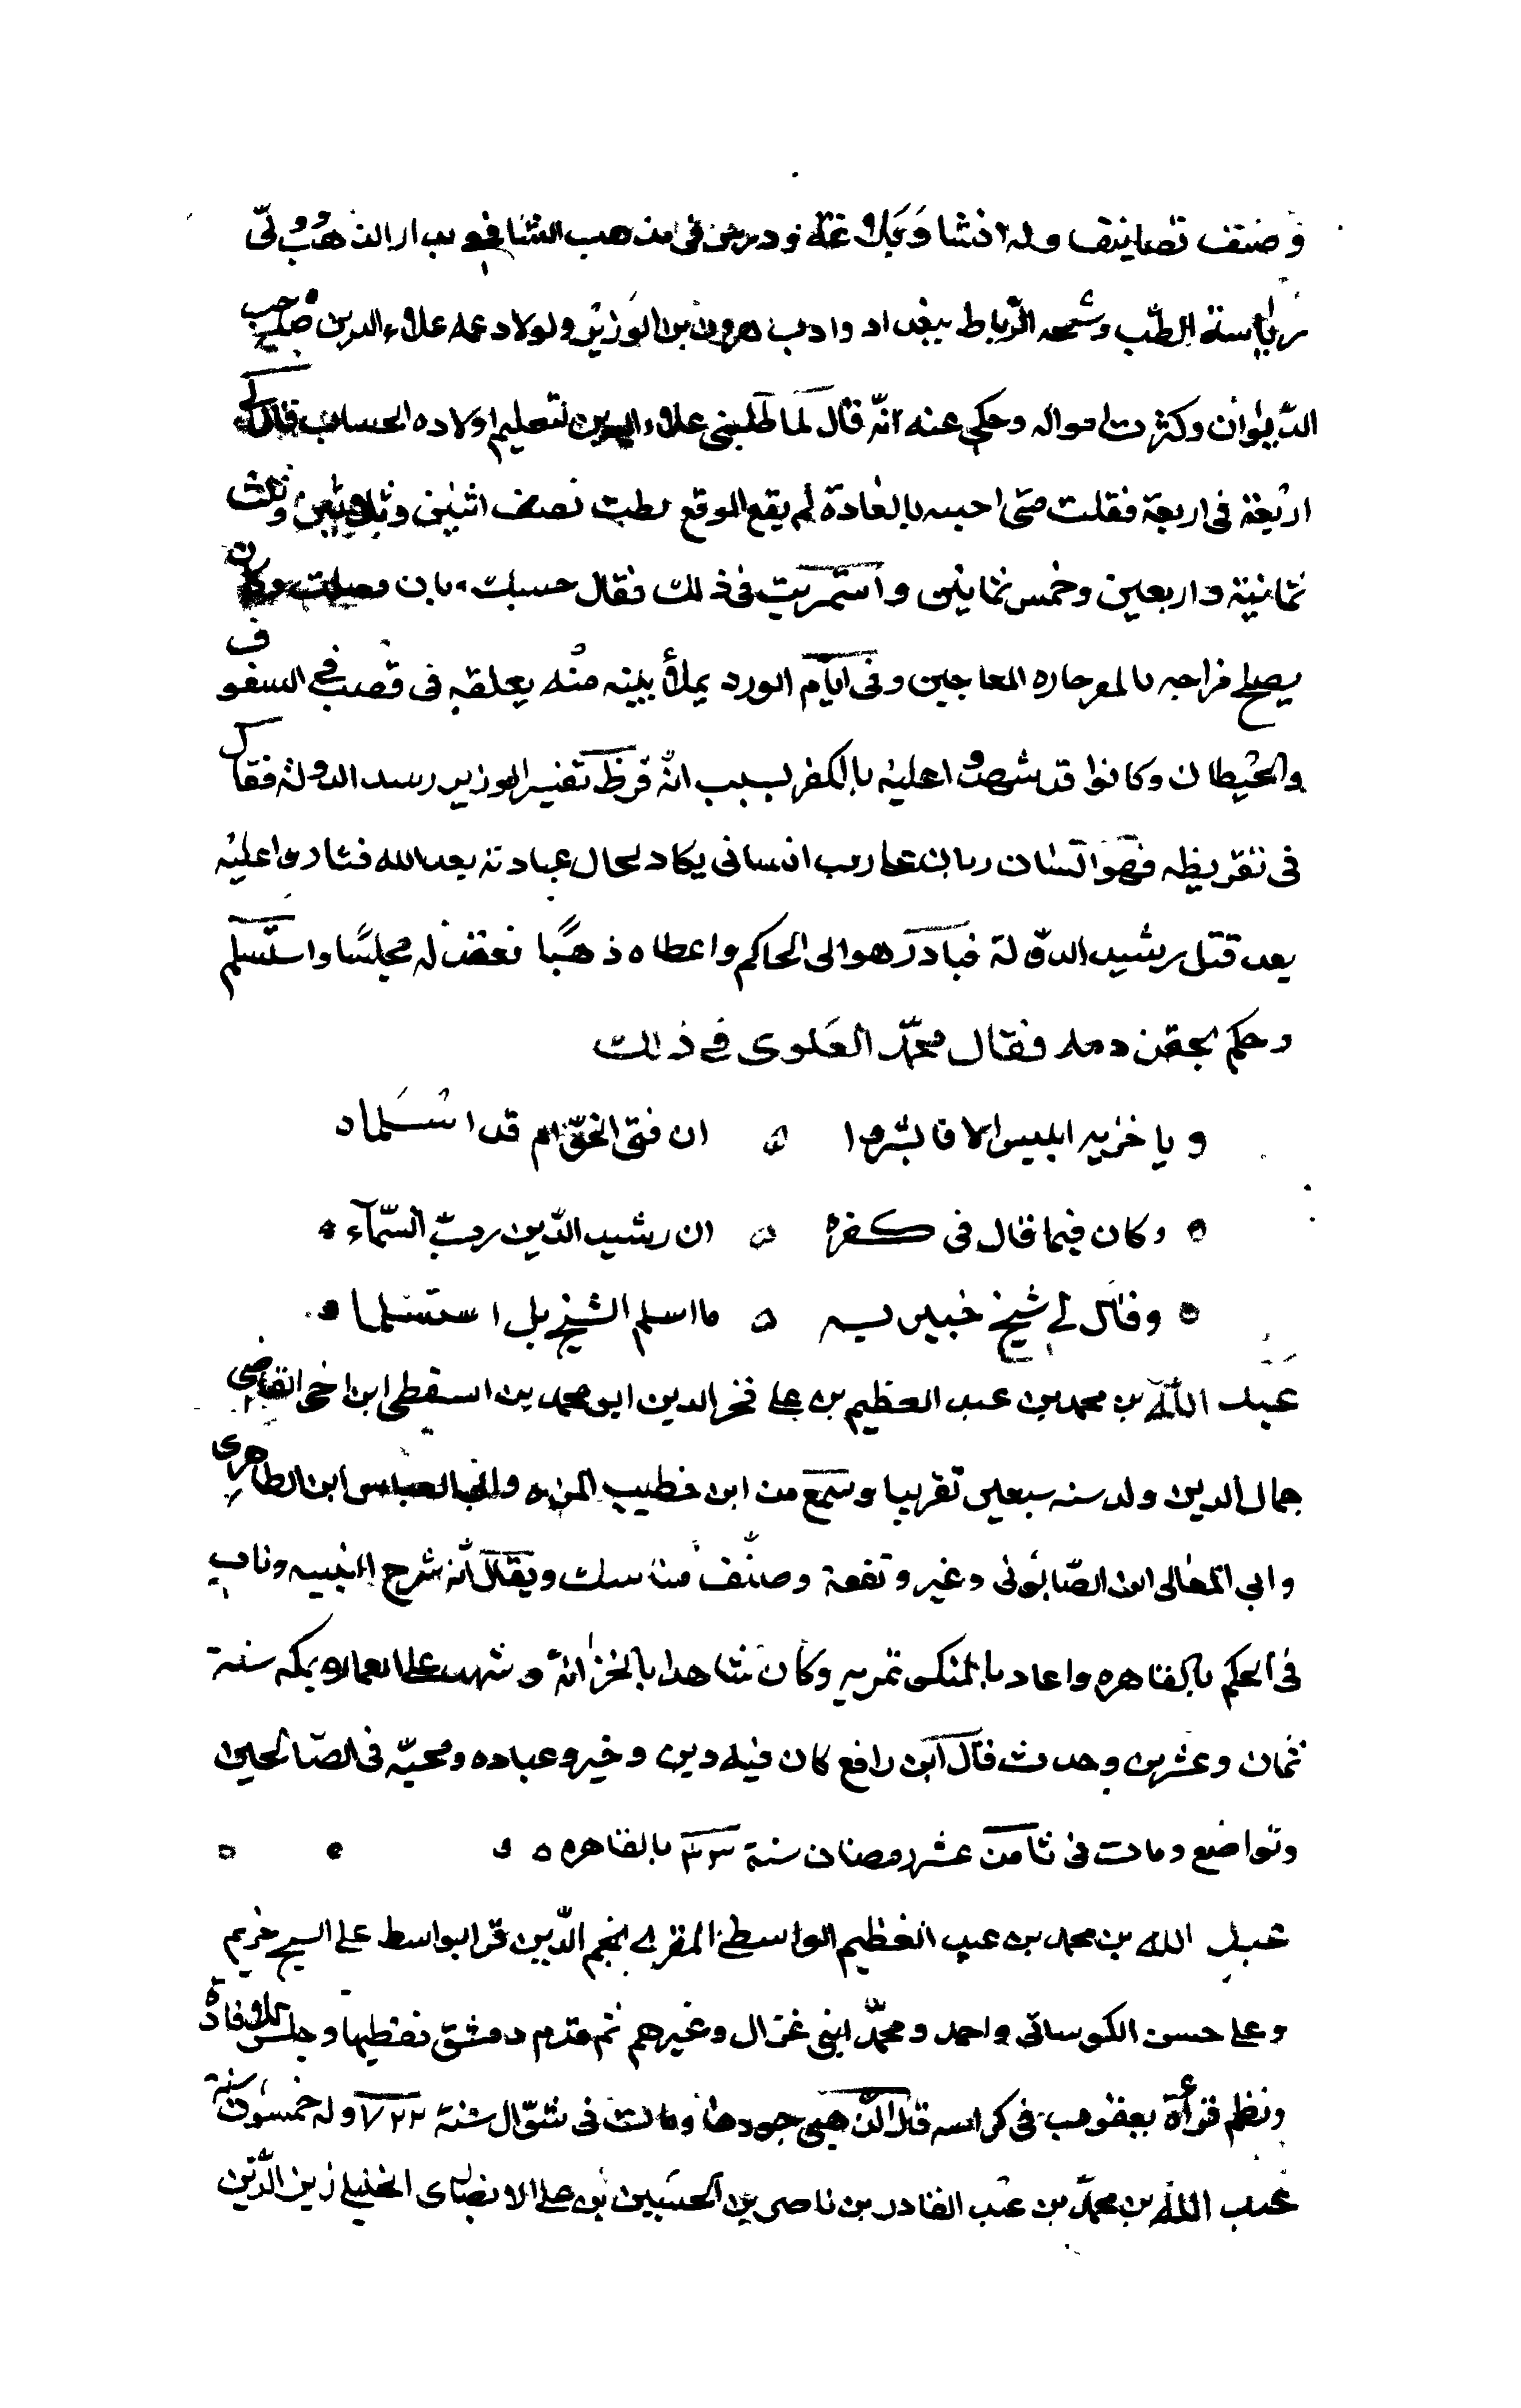 وصنف تصانيف وله انشا وبلاغة ودرس في مذهب الشافعي بدار الذهب وولي
رياسة الطب ومشيخه الرباط ببغداد وادب هرون بن الوزير ولولاد عمه علاء الدين صاحب
الديوان وكثرت امواله وحكي عنه انه قال لما طلبني علاء الدين لتعليم اولاده الحساب قال لي
اربعة في اربعة فقلت متى احبيبه بالعادة لم يقع الموقع نصف اثنين وثلاثين وثلث
ثمانية واربعين وخمس ثمانين واستمريت في ذلك فقال حسبك وكان
يصلح مزاجه بالمفرحاره المعاجين وفي ايام الورد يملأ بيته منه يعلقه في قصب في السقوف
والحيطان وكانوا قد شهدوا عليه بالكفر بسبب انه قرظ تفسير الوزير رسيد الدولة فقال
في تقريظه فهو انسان رباني بل رب انساني يكاد لحال عبادته بعد الله فثاروا عليه
بعد قتل رشيد الدولة فبادر هو الى الحاكم واعطاه ذهبا فعقد له مجلسا واستسلم
وحكم بحقن دمه فقال محمد العلوي في ذلك
ويا حزب ابليس الا فابشروا ان فتى الخوام قد اسلما
وكان فيما قال في كفره ان رشيد الدين رب السماء
وقال لي شيخ خبير به ما اسلم الشيخ بل استسلما
عبد الله بن محمد بن عبد العظيم بن علي فخر الدين ابو محمد بن السقطي ابن اخي القاضي
جمال الدين ولد سنه سبعين تقريبا وسمع من ابن خطيب المزه وابي العباس ابن الطاهري
وابي المعالي ابن الصابوني وغيره وتفقه وصنف مناسك ويقال انه شرح التنبيه وناب
في الحكم بالقاهره واعاد بالمنكوتمريه وكان شاهدا بالخزانة وشهد على العماره بمكه سنة
ثمان وعشرين وحدث قال ابن رافع كان فيه دين وخير وعباده ومحبه في الصالحين
وتواضع ومات في ثامن عشر رمضان سنة ٧٣٣ بالقاهره
عبد الله بن محمد بن عبد العظيم الواسطي المقري نجم الدين قرا بواسط على السيح خريم
وعلى حسن الكوساني واحمد ومحمد ابني غزال وغيرهم ثم قدم دمشق فقطنها وجلس للافادة
ونظم قرأة يعقوب في كراسه قال الذهبي جودها ومات في شوال سنة ٧٢٢ وله خمسون سنة
عبد الله بن محمد بن عبد القادر بن ناصر بن الحسين بن علي الانصاري الخليلي زين الدين